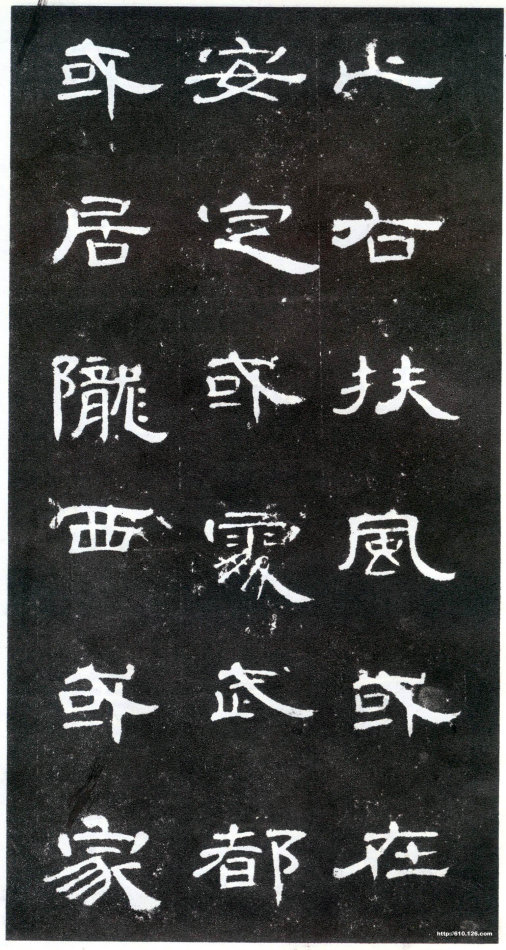 止右扶風或在
安定或處武都
或居隴西或家
http://610.126.com